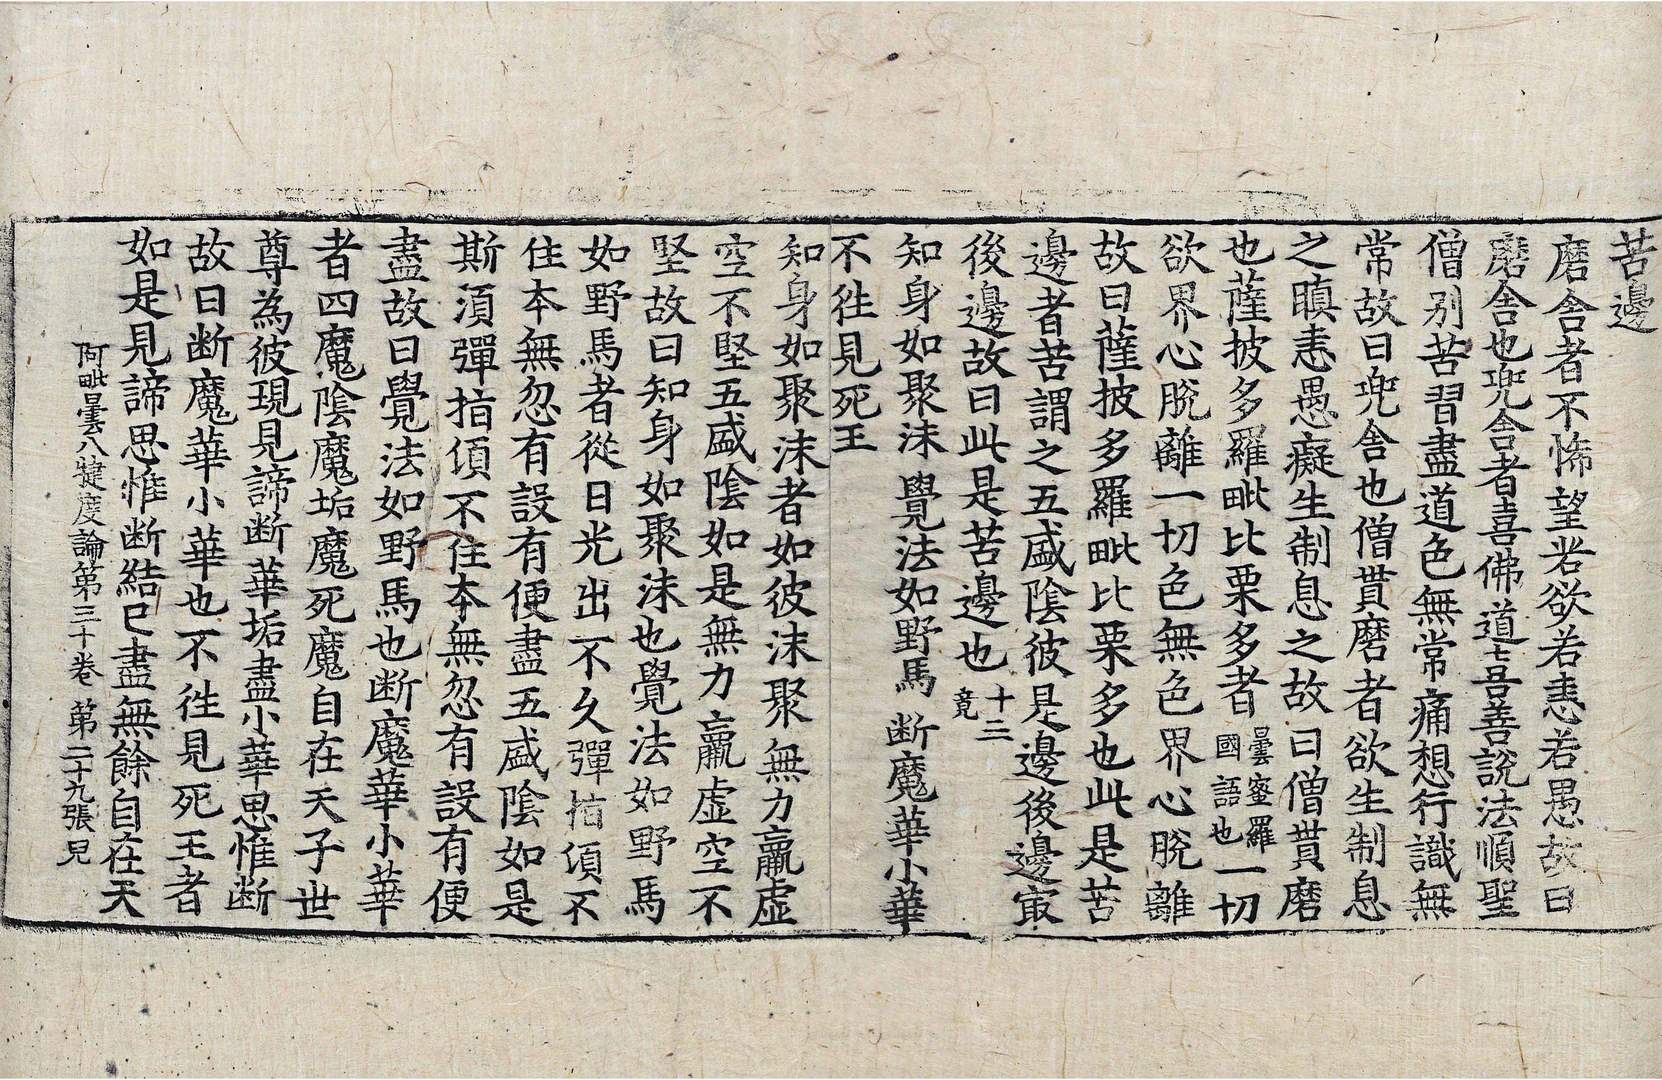 苦邊
磨舍者不怖望若欲若恚若愚故曰
磨舍也兜舍者喜佛道喜善說法順聖
僧別苦習盡道色無常痛想行識無
常故曰兜舍也僧貰磨者欲生制息
之瞋恚愚癡生制息之故曰僧貰磨
也薩披多羅毗比栗多者曇蜜羅國語也一切
欲界心脫離一切色無色界心脫離
故曰薩披多羅毗比栗多也此是苦
邊者苦謂之五盛陰彼是邊後邊㝡
後邊故曰此是苦邊也十三竟
知身如聚沫 覺法如野馬 断魔華小華
不徃見死王
知身如聚沫者如彼沫聚無力羸虛
空不堅五盛陰如是無力羸虛空不
堅故曰知身如聚沫也覺法如野馬
如野馬者從日光出不久彈指湏不
住本無忽有設有便盡五盛陰如是
斯湏彈指湏不住本無忽有設有便
盡故曰覺法如野馬也断魔華小華
者四魔陰魔垢魔死魔自在天子世
尊為彼現見諦断華垢盡小華思惟断
故曰断魔華小華也不徃見死王者
如是見諦思惟断結已盡無餘自在天
阿毗曇八犍度論第三十卷 第二十九張 皃